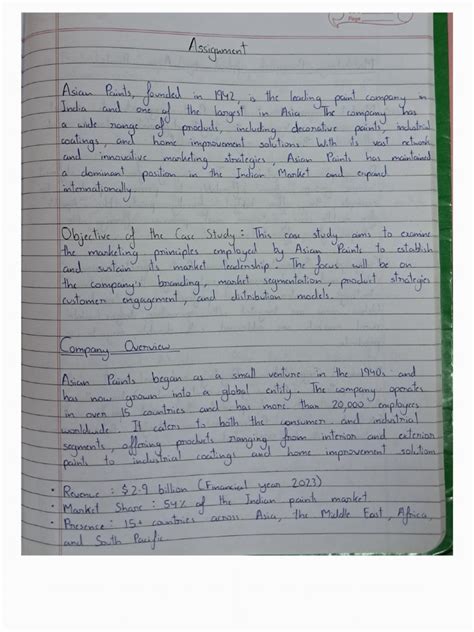 Page
Assignment
Asian Paints, founded in 1942, is the leading paint company in
India and one of the largest in Asia. The company has
a wide range of products, including decorative paints, industrial
coatings, and home improvement solutions. With its vast network
and innovative marketing strategies, Asian Paints has maintained
a dominant position in the Indian Market and expand
internationally.
Objective of the Case Study : This case study aims to examine
the marketing principles employed by Asian Paints to establish
and sustain its market leadership. The focus will be on
the company's branding, market segmentation, product strategies
customer engagement, and distribution models.
Company Overview
Asian Paints began as a small venture in the 1940s and
has now grown into a global entity. The company operates
in over 15 countries and has more than 20,000 employees
worldwide. It caters to both the consumer and industrial
segments, offering products ranging from interior and exterior
paints to industrial coatings and home improvement solutions
• Revenue : $2.9 billion (Financial year 2023)
• Market Share : 54% of the Indian paints market
• Presence : 15+ countries across Asia, the Middle East, Africa,
and South Pacific